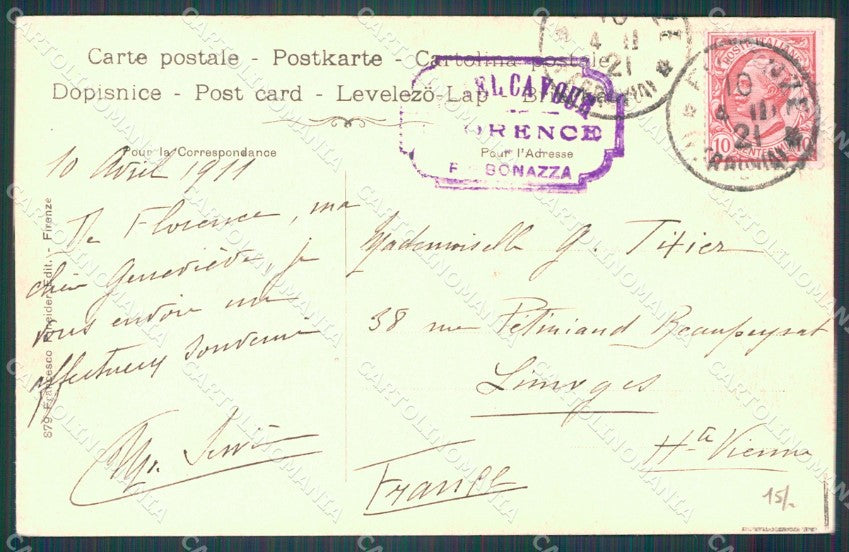 Carte postale - Postkarte - Cartolina postale
Dopisnice - Post card - Levelezö-Lap -
Pour la Correspondance
Pour l'Adresse
EL CAVOUR
ORENCE
BONAZZA
POSTE ITALIANE
10 10
10
4 11
21
10
4 III
21
10 Avril 1911
De Florence, ma
chère Geneviève, je
vous envoie un
affectueux souvenir
Mademoiselle G. Tixier
38 rue Pétiniaud Beaupeyrat
Limoges
Hte Vienne
France
879 Francesco Pineider Edit. - Firenze
15/-
CARTOLINOMANIA